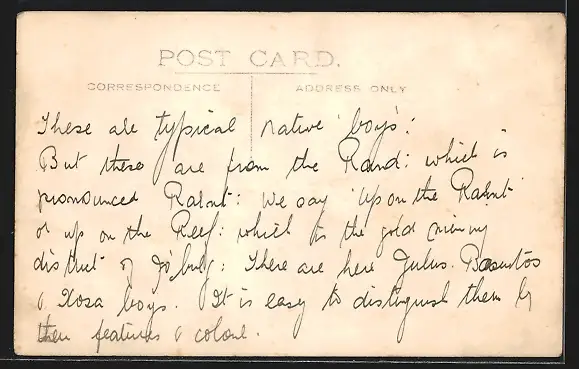 POST CARD.
CORRESPONDENCE ADDRESS ONLY
These are typical native 'boys':
But these are from the Rand: which is
pronounced Rahnt: We say 'Up on the Rahnt'
or up on the Reef: which is the gold mining
district of Jo'burg: There are here Zulus. Basutos
& Xosa boys. It is easy to distinguish them by
their features & colour.